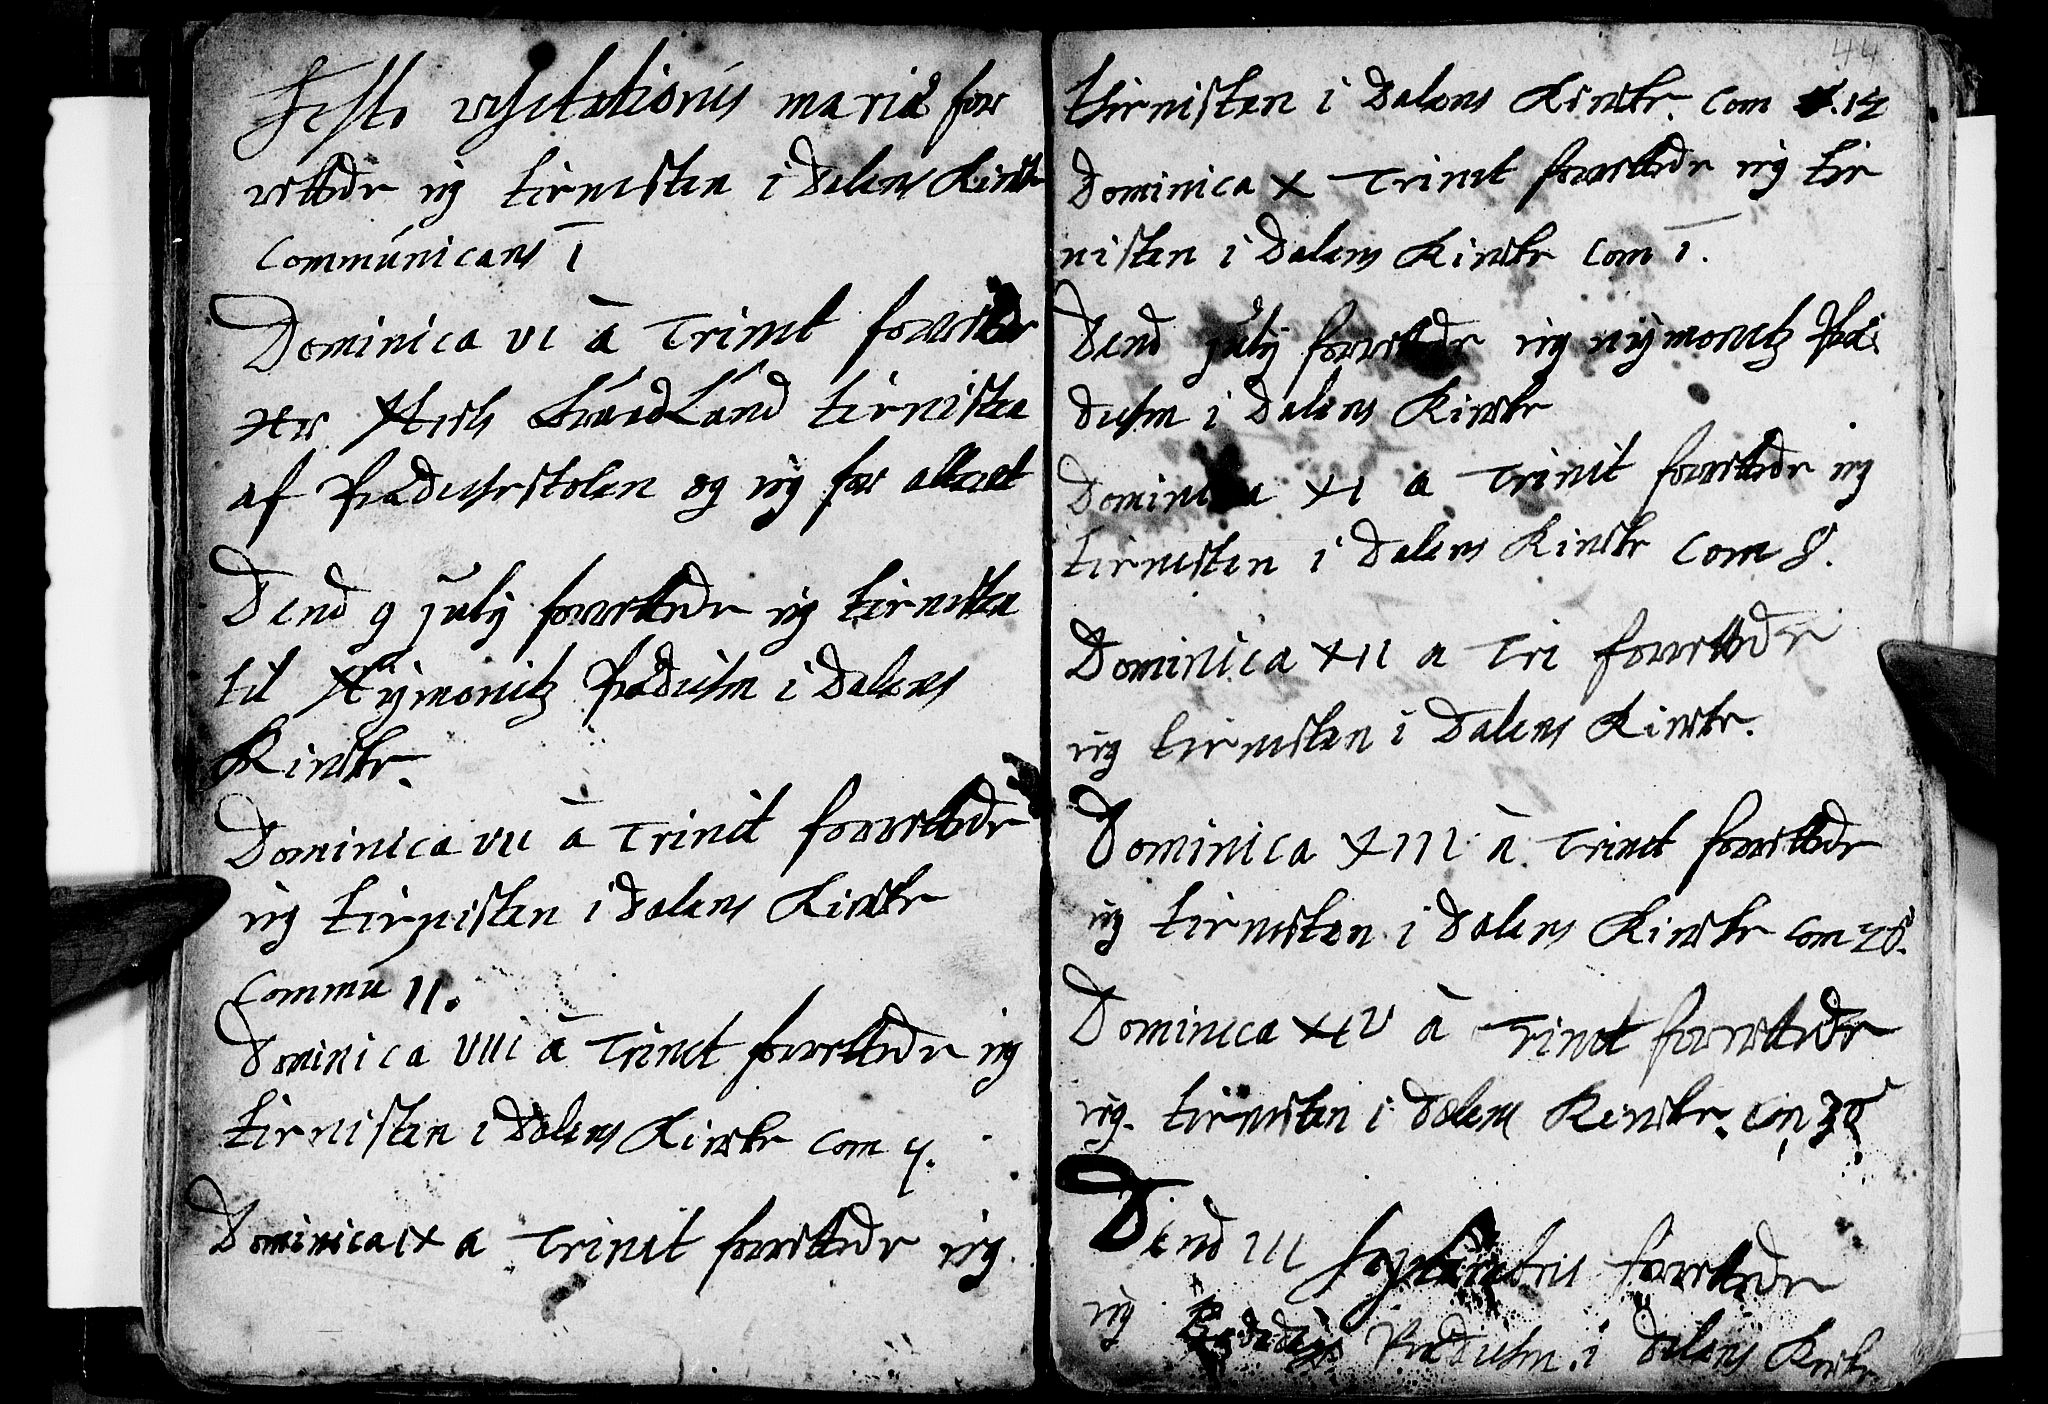 Festo visitationis mariæ for
rettede ieg tienisten i Dalens Kircke
Communicans 1
Dominica VI à Trinit forrettede
Her Niels Lund tienisten
af Prædichestolen og ieg for alteret
Dend 9 July forrettede ieg tienisten
til Nÿmonitz Prædichen i Dalens
Kircke.
Dominica VII à Trinit forrettede
ieg tienisten i Dalens Kircke
Commu 11.
Dominica VIII à Trinit forrettede ieg
tienisten i Dalens Kircke com 4.
Dominica IX a Trinit forrettede ieg
44
tienisten i Dalens Kircke. Com 14
Dominica X Trinit forrettede ieg tie
nisten i Dalens Kircke Com 1.
Dend July forrettede ieg nÿmonitz Præ
dichen i Dalens Kircke
Dominica XI a Trinit forrettede ieg
tienisten i Dalens Kircke Com 8.
Dominica XII a Tri forrettede
ieg tienisten i Dalens Kircke.
Dominica XIII à Trinit forrettede
ieg tienisten i Dalens Kircke Com 28.
Dominica XIV à Trinit forrettede
ieg tienisten i Dalens Kircke. Com 38
Dend III Septembris forrettede
ieg Prædichen i Dalens Kircke